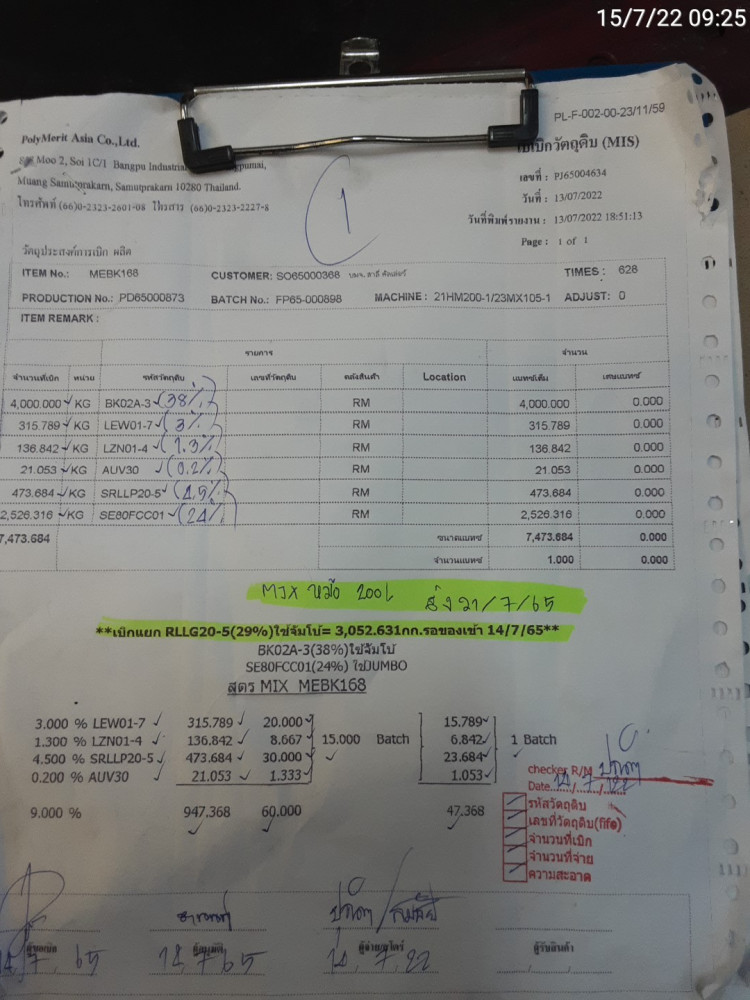 15/7/22 09:25
PL-F-002-00-23/11/59
PolyMerit Asia Co.,Ltd.
ใบเบิกวัตถุดิบ (MIS)
Moo 2, Soi 1C/1 Bangpu
Muang Samutprakarn, Samutprakarn 10280 Thailand.
เลขที่ : PJ65004634
โทรศัพท์ (66)0-2323-2601-08 โทรสาร (66)0-2323-2227-8
วันที่ : 13/07/2022
1
วันที่พิมพ์รายงาน : 13/07/2022 18:51:13
Page : 1 of 1
วัตถุประสงค์การเบิก ผลิต
ITEM No.: MEBK168 CUSTOMER: SO65000368 TIMES : 628
PRODUCTION No.: PD65000873 BATCH No.: FP65-000898 MACHINE : 21HM200-1/23MX105-1 ADJUST: 0
ITEM REMARK :
รายการ จำนวน
จำนวนที่เบิก หน่วย รหัสวัตถุดิบ เลขที่วัตถุดิบ คลังสินค้า Location แบทช์เต็ม เศษแบทช์
4,000.000 KG BK02A-3 (38%) RM 4,000.000 0.000
315.789 KG LEW01-7 (3%) RM 315.789 0.000
136.842 KG LZN01-4 (1.3%) RM 136.842 0.000
21.053 KG AUV30 (0.2%) RM 21.053 0.000
473.684 KG SRLLP20-5 (4.5%) RM 473.684 0.000
2,526.316 KG SE80FCC01 (24%) RM 2,526.316 0.000
7,473.684 ขนาดแบทช์ 7,473.684 0.000
จำนวนแบทช์ 1.000 0.000
MIX หม้อ 200L ส่ง 21/7/65
**เบิกแยก RLLG20-5(29%)ใช้จัมโบ้= 3,052.631กก.รอของเข้า 14/7/65**
BK02A-3(38%)ใช้จัมโบ้
SE80FCC01(24%) ใช้JUMBO
สูตร MIX MEBK168
3.000 % LEW01-7 315.789 20.000 15.789
1.300 % LZN01-4 136.842 8.667 15.000 Batch 6.842 1 Batch
4.500 % SRLLP20-5 473.684 30.000 23.684
0.200 % AUV30 21.053 1.333 1.053
9.000 % 947.368 60.000 47.368
checker R/M
Date 14/7/22
รหัสวัตถุดิบ
เลขที่วัตถุดิบ(fifo)
จำนวนที่เบิก
จำนวนที่จ่าย
ความสะอาด
ผู้ขอเบิก ผู้อนุมัติ ผู้รับสินค้า
14, 7, 65 14, 7, 65 14, 7, 22